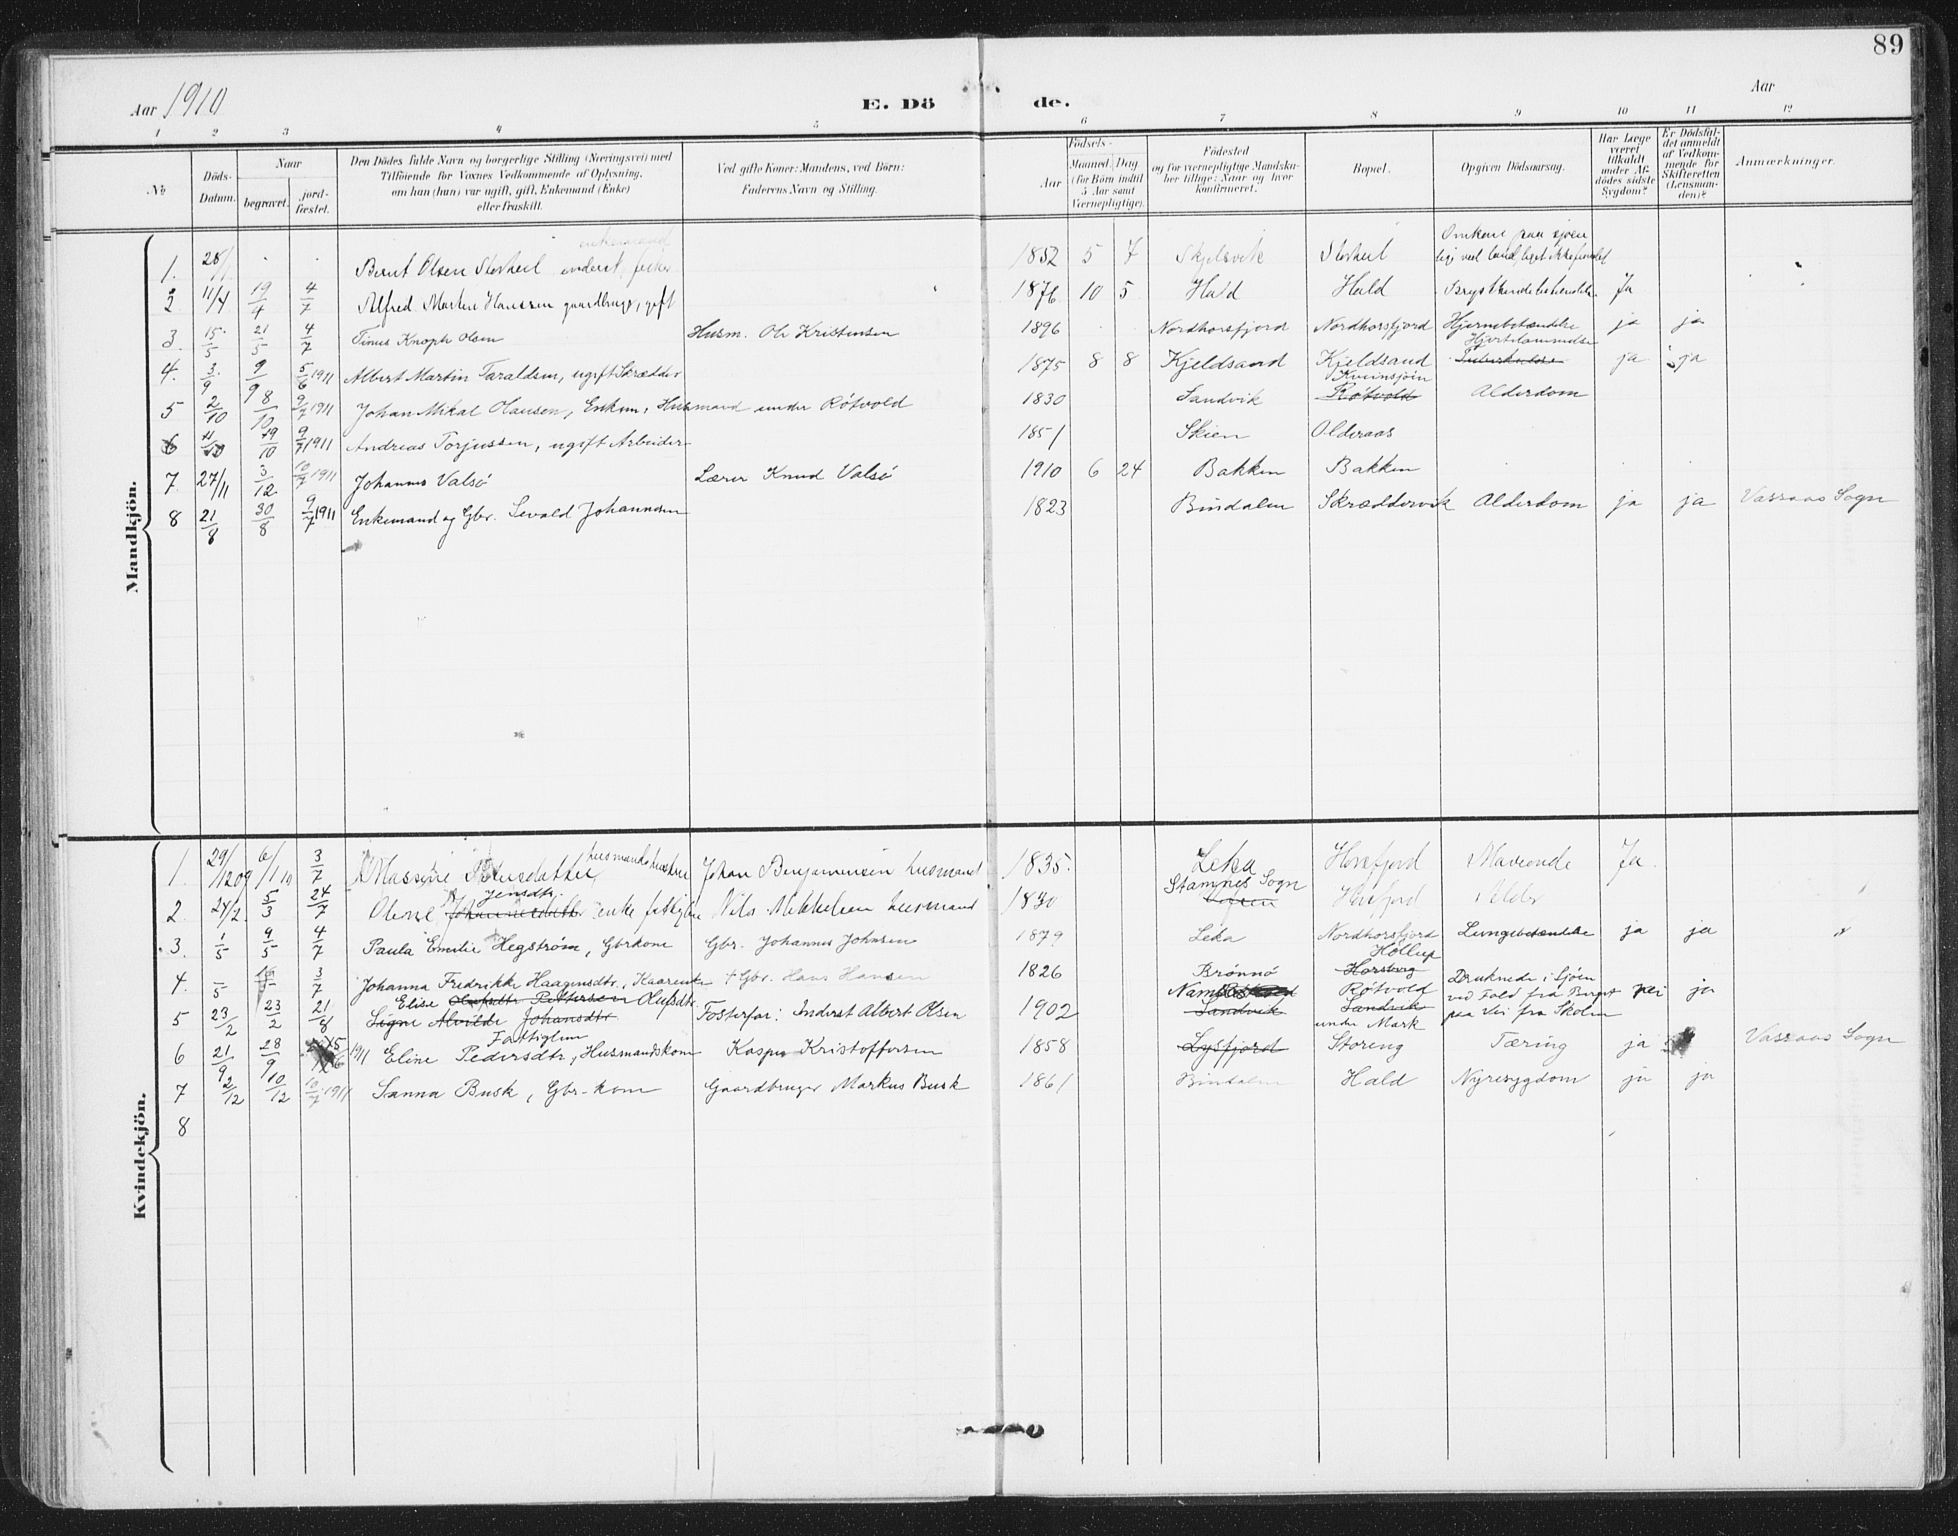 89
Aar 1910
E. Dö de.
Aar
1 2 3 4 5 6 7 8 9 10 11 12
No
Döds-Datum.
Naar
begravet.
jord-fæstet.
Den Dödes fulde Navn og borgerlige Stilling (Næringsvei) med
Tilföiende för Voxnes Vedkommende af Oplysning,
om han (hun) var ugift, gift, Enkemand (Enke)
eller fraskilt.
Ved gifte Koner: Mandens, ved Börn:
Faderens Navn og Stilling.
Födsels-
Aar
Maaned Dag
(for Börn indtil
5 Aar samt
Værnepligtige).
Födested
og for værnepligtige Mandska-
ber tillige: Naar og hvor
konfirmeret.
Bopæl.
Opgiven Dödsaarsag.
Har Læge
været
tilkaldt
under Af-
dödes sidste
Sygdom?
Er Dödsfal-
det anmeldt
af Vedkom-
mende for
Skifteretten
(Lensman-
den)?
Anmærkninger.
Mandkjön.
enkemand
1. 28/1 Bernt Olsen Storheil inderst, fisker 1852 5 7 Skjelsvik Storheil Omkom paa sjøen
lige ved land, liget ikke fundet
2 11/4 19/4 4/7 Alfred Martin Hanssen gaardbruger, gift 1876 10 5 Hald Hald Brystbetændelse Ja
3. 15/5 21/5 4/7 Tinus Knoph Olsen Husm. Ole Kristensen 1896 Nordhorsfjord Nordhorsfjord Hjernebetændelse ja ja
Hjertelammelse
4. 3/9 9/9 5/6 1911 Albert Martin Taraldsen, ugift Skrædder 1875 8 8 Kjeldsand Kjeldsand Tuberkulose ja ja
Kveinsjøin
5 2/10 8/10 9/7 1911 Johan Mikal Hansen, Enkem, Husmand under Røtvold 1830 Sandvik Røtvold Alderdom
6 11/10 19/10 9/7 1911 Andreas Torjussen, ugift Arbeider 1851 Skien Olderaas
7 27/11 3/12 10/7 1911 Johannes Valsø Lærer Knud Valsø 1910 6 24 Bakken Bakken
8 21/8 30/8 9/7 1911 Enkemand og Gbr. Sevald Johannesen 1823 Bindalen Skræddervik Alderdom ja ja Vassaas Sogn
Kvindekjön.
husmandshustru
1. 29/12 09 6/1 10 3/7 Massine Johan Benjaminsen husmand 1835. Leka Horsfjord Marende Ja
Jensdtr. Stamnes Sogn
2. 24/2 5/3 24/7 Oline Johannesdatter enke fattiglem Nils Mikkelsen husmand 1830 Horsfjord Alder
3. 1/5 9/5 4/7 Paula Emilie Hegstrøm, Gbrkone Gbr. Johannes Johnsen 1879 Leka Nordhorsfjord Lungebetændelse ja ja
Hollup
4. 5 3/7 Johanna Fredrikke Haagensdtr., Kaarenke † Gbr. Hans Hansen 1826 Brønnø Horsberg
Elise Olufsdtr Pettersen Olufsdtr. Røtvold Druknede i Sjøen
5 23/2 23/2 21/8 Signe Alvilde Johansdtr Fosterfar: Inderst Albert Olsen 1902 Sandvik Sandvik ved Fald fra Berget nei ja
under Mark paa Vei fra Skolen
Fattiglem
6 21/9 28/9 1911 Eline Pedersdtr, Husmandskone Kasper Kristoffersen 1858 Lysfjord Storeng Tæring ja Vassaas Sogn
7 2/12 10/12 10/7 1911 Sanna Busk, Gbr-kone Gaardbruger Markus Busk 1861 Bindalen Hald Nyresygdom ja ja
8